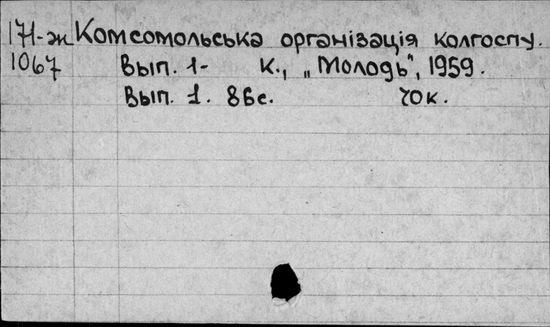 171-ж Комсомольська організація колгоспу.
1067 Вып. 1- К., „Молодь", 1959.
Вып. 1. 86с. 70к.